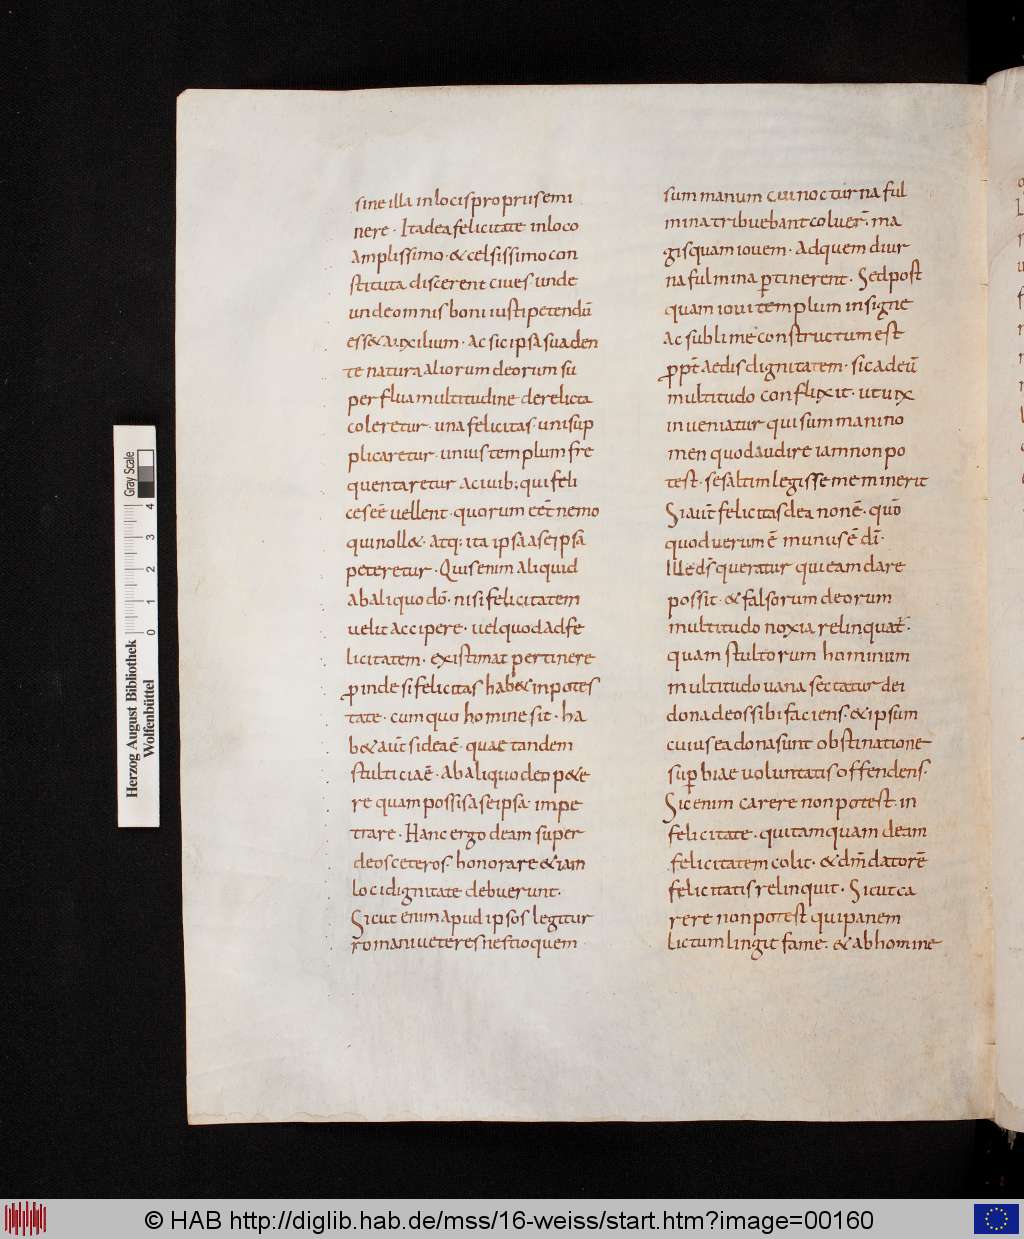 sine illa in locis propriis emi
nere · Ita dea felicitate in loco
Amplissimo · & celsissimo con
stituta discerent cives unde
unde omnis boni iusti petendū
ess& auxilium · Ac sic ipsa suaden
te natura aliorum deorum su
per flua multitudine derelicta
coleretur · una felicitas · uni sup
plicaretur · unius templum fre
quentaretur a civib; qui feli
ces eē vellent · quorum eēt nemo
qui noll& · atq; ita ipsā a se ipsā
peteretur · Quis enim aliquid
ab aliquo dō · nisi felicitatem
velit accipere · vel quod ad fe
licitatem · existimat pertinere
ꝓinde si felicitas hab& in potes
tate · cum quo homine sit · ha
b& aut̄ si dea ē · quae tandem
stulticia ē · ab aliquo deo p&e
re quam possis a se ipsa · impe
trare · Hanc ergo deam super
deos ceteros honorare & iam
loci dignitate debuerunt ·
Sicut enim apud ipsos legitur
romani veteres nescio quem
summanum cui nocturna ful
mina tribuebant coluer̄ · ma
gis quam iouem · Ad quem diur
na fulmina ꝑtinerent · Sed post
quam ioui templum insigne
ac sublime constructum est
ꝓpt̄ aedis dignitatem · sic ad eū
multitudo conflixit · ut uix
inueniatur qui summani no
men quod audire iam non po
test · se saltim legisse meminerit
Si aut̄ felicitas dea non ē · quō
quod uerum ē munus ē dī ·
Ille ds̄ queratur qui eam dare
possit · & falsorum deorum
multitudo noxia relinquat̄ ·
quam stultorum hominum
multitudo uana sectatur dei
dona deos sibi faciens · & ipsum
cuius ea dona sunt obstinatione
suꝑbiae uoluntatis offendens ·
Sic enim carere non potest · in
felicitate · qui tamquam deam
felicitatem colit · & dm̄ datorē
felicitatis relinquit · Sicut ca
rere non potest qui panem
lictum lingit fame · & ab homine
Herzog August Bibliothek
Wolfenbüttel
0 1 2 3 4
Gray Scale
© HAB http://diglib.hab.de/mss/16-weiss/start.htm?image=00160